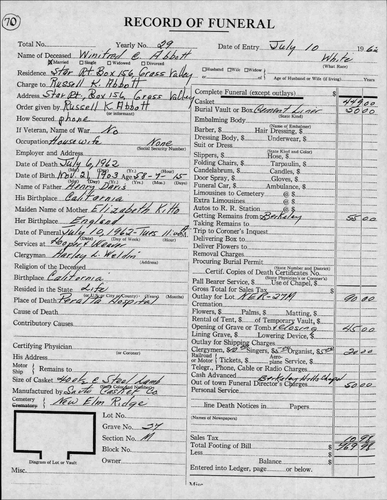 70
RECORD OF FUNERAL
Total No. Yearly No. 29 Date of Entry July 10 1962
Name of Deceased Winifred E. Abbott White
(What Race)
Married Single Widowed Divorced
Husband Wife Widow of
Residence Star Rt Box 156, Grass Valley
Age of Husband or Wife (if living) Years
Charge to Russell K. Abbott
Address Star Rt. Box 156, Grass Valley
Order given by Russell K Abbott
(or informant)
How Secured phone
If Veteran, Name of War No
Occupation Housewife None
(Social Security Number)
Employer and Address
Date of Death July 6, 1962
Date of Birth Nov. 21, 1903 Age 58-7-15
Name of Father Henry Davis
His Birthplace California
Maiden Name of Mother Elizabeth Kitto
Her Birthplace England
Date of Funeral July 10, 1962-Tues 11
Services at Hooper & Weaver
Clergyman Harley L.
Religion of the Deceased
Birthplace California
Resided in the State Life
Place of Death Peralta Hospital
Cause of Death
Contributory Causes
Certifying Physician
(or Coroner)
His Address
Motor
Ship Remains to
Size of Casket
Manufactured by Casket Co.
Cemetery
Crematory New Elm Ridge
Lot No.
Grave No. 27
Section No. M
Block No.
Owner
Diagram of Lot or Vault
Misc.
Complete Funeral (except outlays) $
Casket 449.00
Burial Vault or Box Cement Liner 50.00
(State Kind)
Embalming Body
(Name of Embalmer)
Barber, $ Hair Dressing, $
Dressing Body, $ Underwear, $
Suit or Dress
(State Kind and Color)
Slippers, $ Hose, $
Folding Chairs, $ Tarpaulin, $
Candelabrum, $ Candles, $
Door Spray, $ Gloves, $
Funeral Car, $ Ambulance, $
Limousines to Cemetery @ $
Extra Limousines @ $
Autos to R. R. Station @ $
Getting Remains from Berkeley 55.00
Taking Remains to
Trip to Coroner's Inquest
Delivering Box to
Deliver Flowers to
Removal Charges
Procuring Burial Permit
(State Number and District)
Certif. Copies of Death Certificates No.
(State Physician or Coroner)
Pall Bearer Service, $ Use of Chapel, $
Gross Total for Sales Tax $
Outlay for Lot NER-27M 90.00
Cremation
Flowers, $ Palms, $ Matting, $
Rental of Tent, $ of Temporary Vault, $
Opening of Grave or Tomb + closing 45.00
Lining Grave, $ Lowering Device, $
Outlay for Shipping Charges
Clergymen, $ Singers, $ Organist, $ 20.00
Railroad or Motor Tickets, $ Aeroplane Service, $
Telegr., Phone, Cable or Radio Charges
Cash Advanced Berkeley Hills Chapel
Out of town Funeral Director's Charges 50.00
Personal Service
line Death Notices in Papers
(Names of Newspapers)
Sales Tax
Total Footing of Bill $
Less $
Balance $
Entered into Ledger, page or below.
Misc.